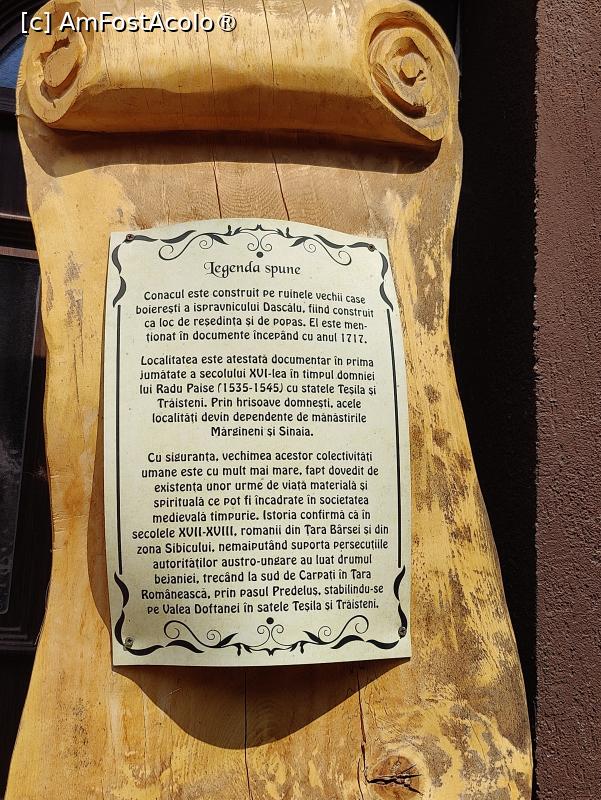 [c] AmFostAcolo®
Legenda spune
Conacul este construit pe ruinele vechii case
boierești a ispravnicului Dascălu, fiind construit
ca loc de reședință și de popas. El este men-
ționat în documente începând cu anul 1717.
Localitatea este atestată documentar în prima
jumătate a secolului XVI-lea în timpul domniei
lui Radu Paise (1535-1545) cu statele Teșila și
Trăisteni. Prin hrisoave domnești, acele
localități devin dependente de mănăstirile
Mărgineni și Sinaia.
Cu siguranța, vechimea acestor colectivități
umane este cu mult mai mare, fapt dovedit de
existența unor urme de viață materială și
spirituală ce pot fi încadrate în societatea
medievală timpurie. Istoria confirmă că în
secolele XVII-XVIII, romanii din Țara Bârsei și din
zona Sibicului, nemaiputând suporta persecuțiile
autorităților austro-ungare au luat drumul
bejaniei, trecând la sud de Carpați în Țara
Românească, prin pasul Predeluș, stabilindu-se
pe Valea Doftanei în satele Teșila și Trăisteni.